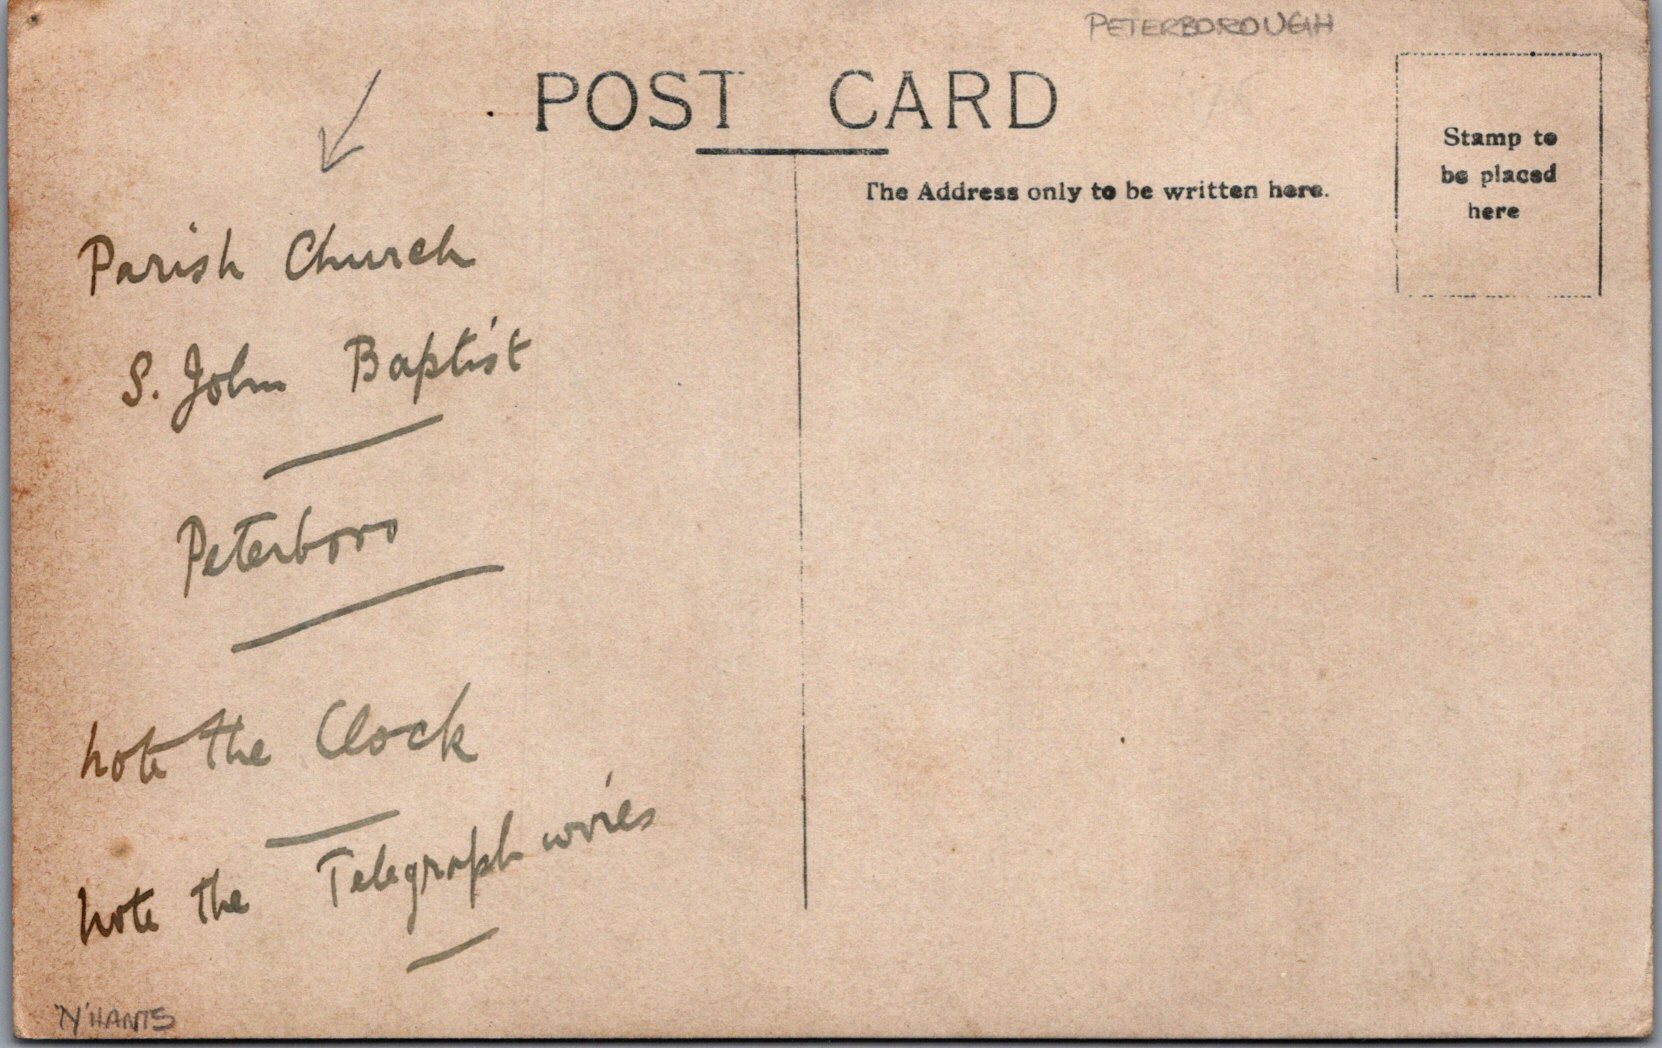 PETERBOROUGH
POST CARD
The Address only to be written here.
Stamp to
be placed
here
Parish Church
S. John Baptist
Peterboro
note the Clock
note the Telegraph wires
N'HANTS